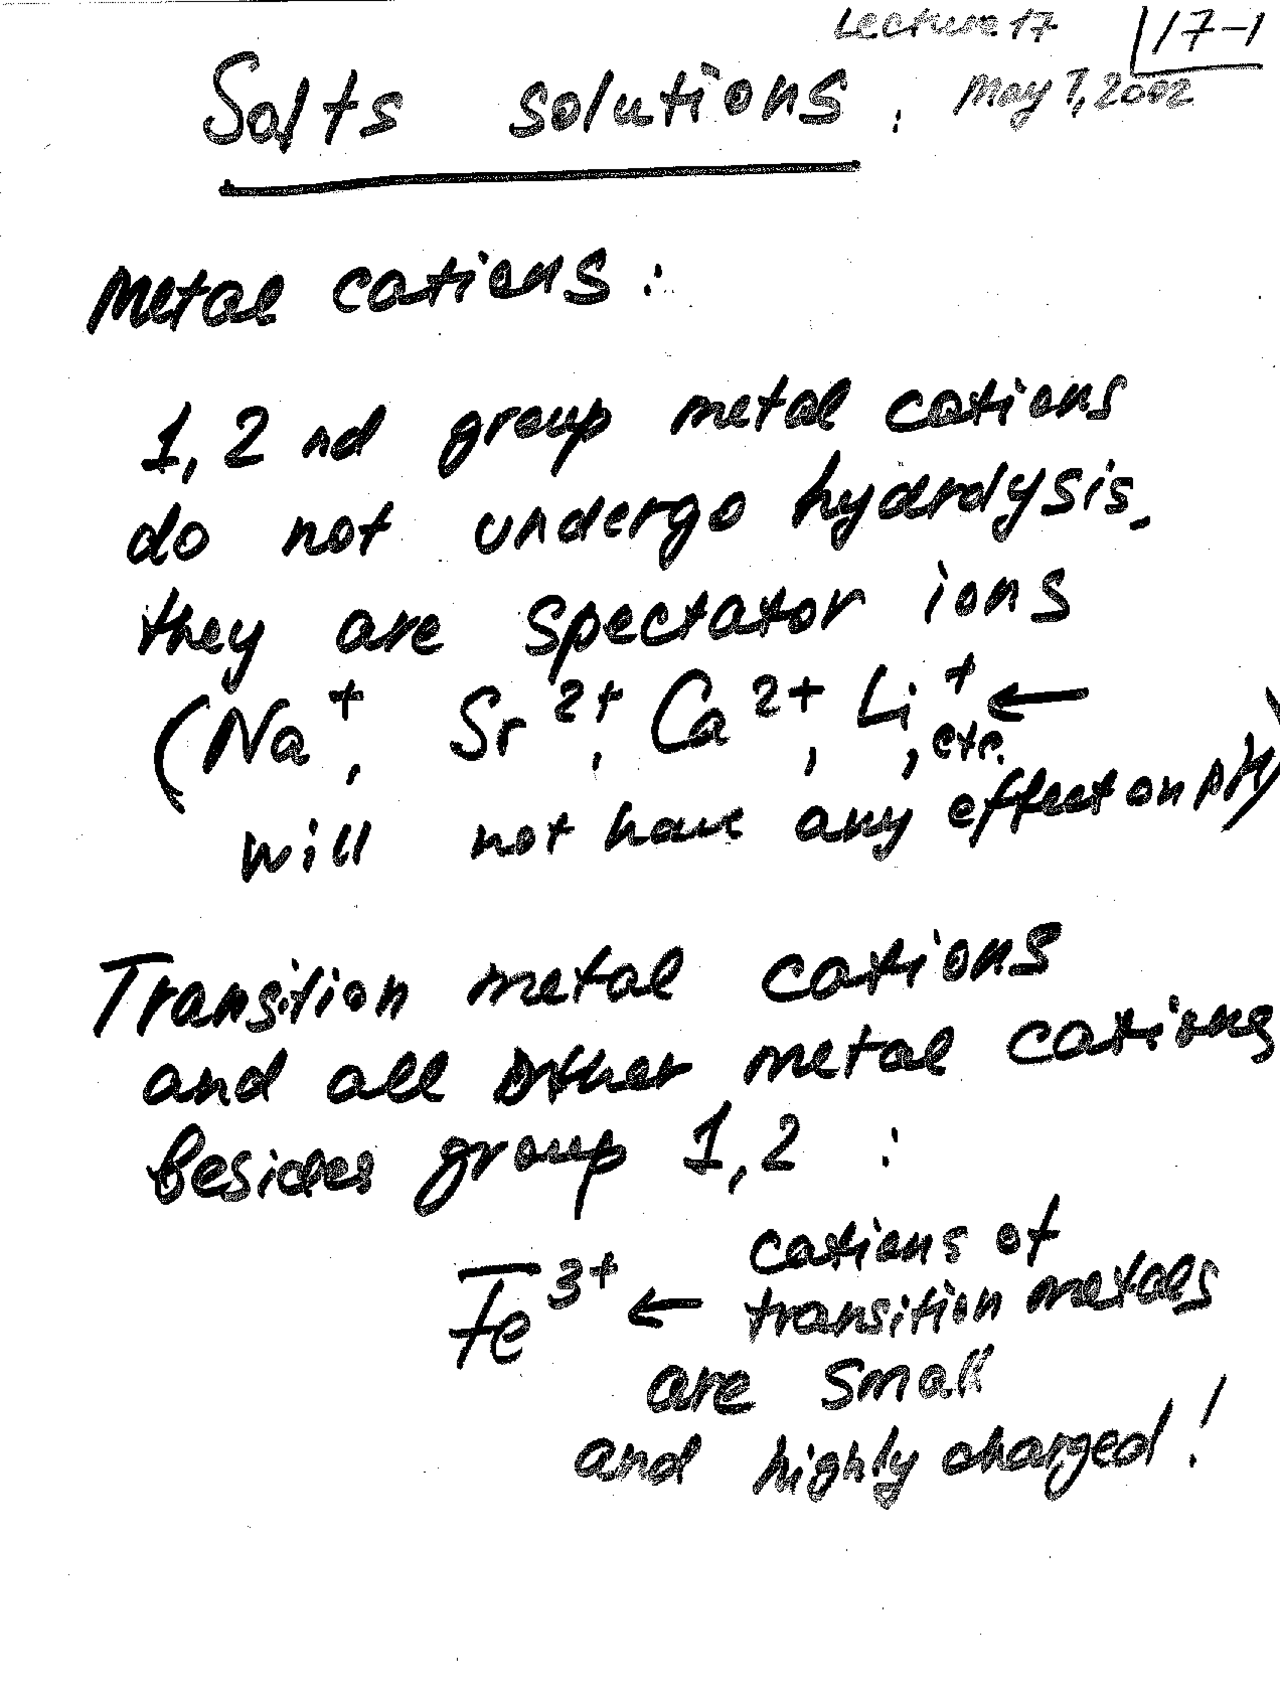 Lecture 17 17-1
Salts solutions. May 7, 2002
Metal cations:
1, 2 nd group metal cations
do not undergo hydrolysis.
they are spectator ions
(Na⁺, Sr²⁺, Ca²⁺, Li⁺, etc. ←
will not have any effect on pH)
Transition metal cations
and all other metal cations
besides group 1, 2 :
Fe³⁺ ← cations of
transition metals
are small
and highly charged!